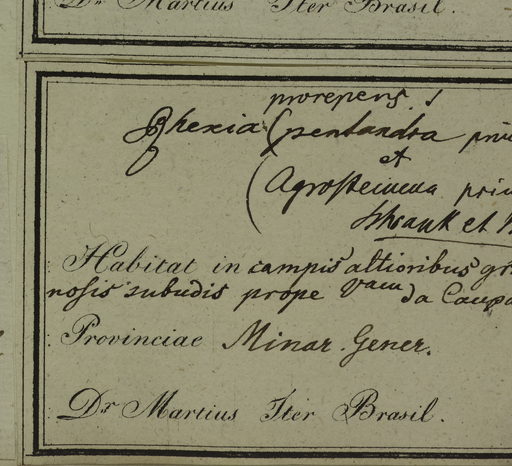 Dr Martius Iter Brasil.
prorepens!
Rhexia (pentandra
et
(Agrostemma
Schrank et
Habitat in campis altioribus
nosis subudis prope Vam da
Provinciae Minar. Gener.
Dr Martius Iter Brasil.